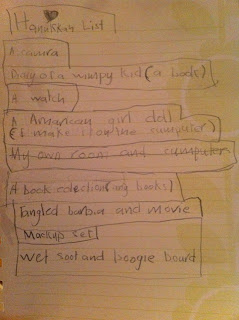 Hanukkay List
A camera
Diary of a wimpy kid (a book)
A watch
A American girl doll
My own room and cumputer
A book colection (any books)
Tangled barbie and movie
Mackup set
wet soot and boogie board